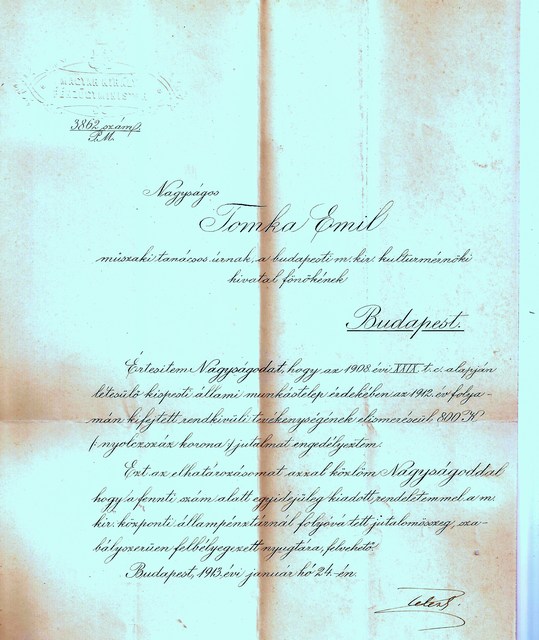 MAGYAR KIRÁLYI
PÉNZÜGYMINISTER
3862 szám/.
P.M.
Nagyságos
Tomka Emil
műszaki tanácsos úrnak, a budapesti m. kir. kultúrmérnöki
hivatal főnökének
Budapest.
Értesítem Nagyságodat, hogy az 1908. évi XXIX. t. c. alapján
létesülő kispesti állami munkástelep érdekében az 1912. év folya-
mán kifejtett rendkivüli tevékenységének elismeréséül 800 K
(nyolczszáz korona) jutalmat engedélyeztem.
Ezt az elhatározásomat azzal közlöm Nagyságoddal
hogy a fennti szám alatt egyidejüleg kiadott rendeletemmel a m.
kir. központi állampénztárnál folyóvá tett jutalomösszeg, sza-
bályszerüen felbélyegezett nyugtára, felvehető.
Budapest, 1913. évi január hó 24-én.